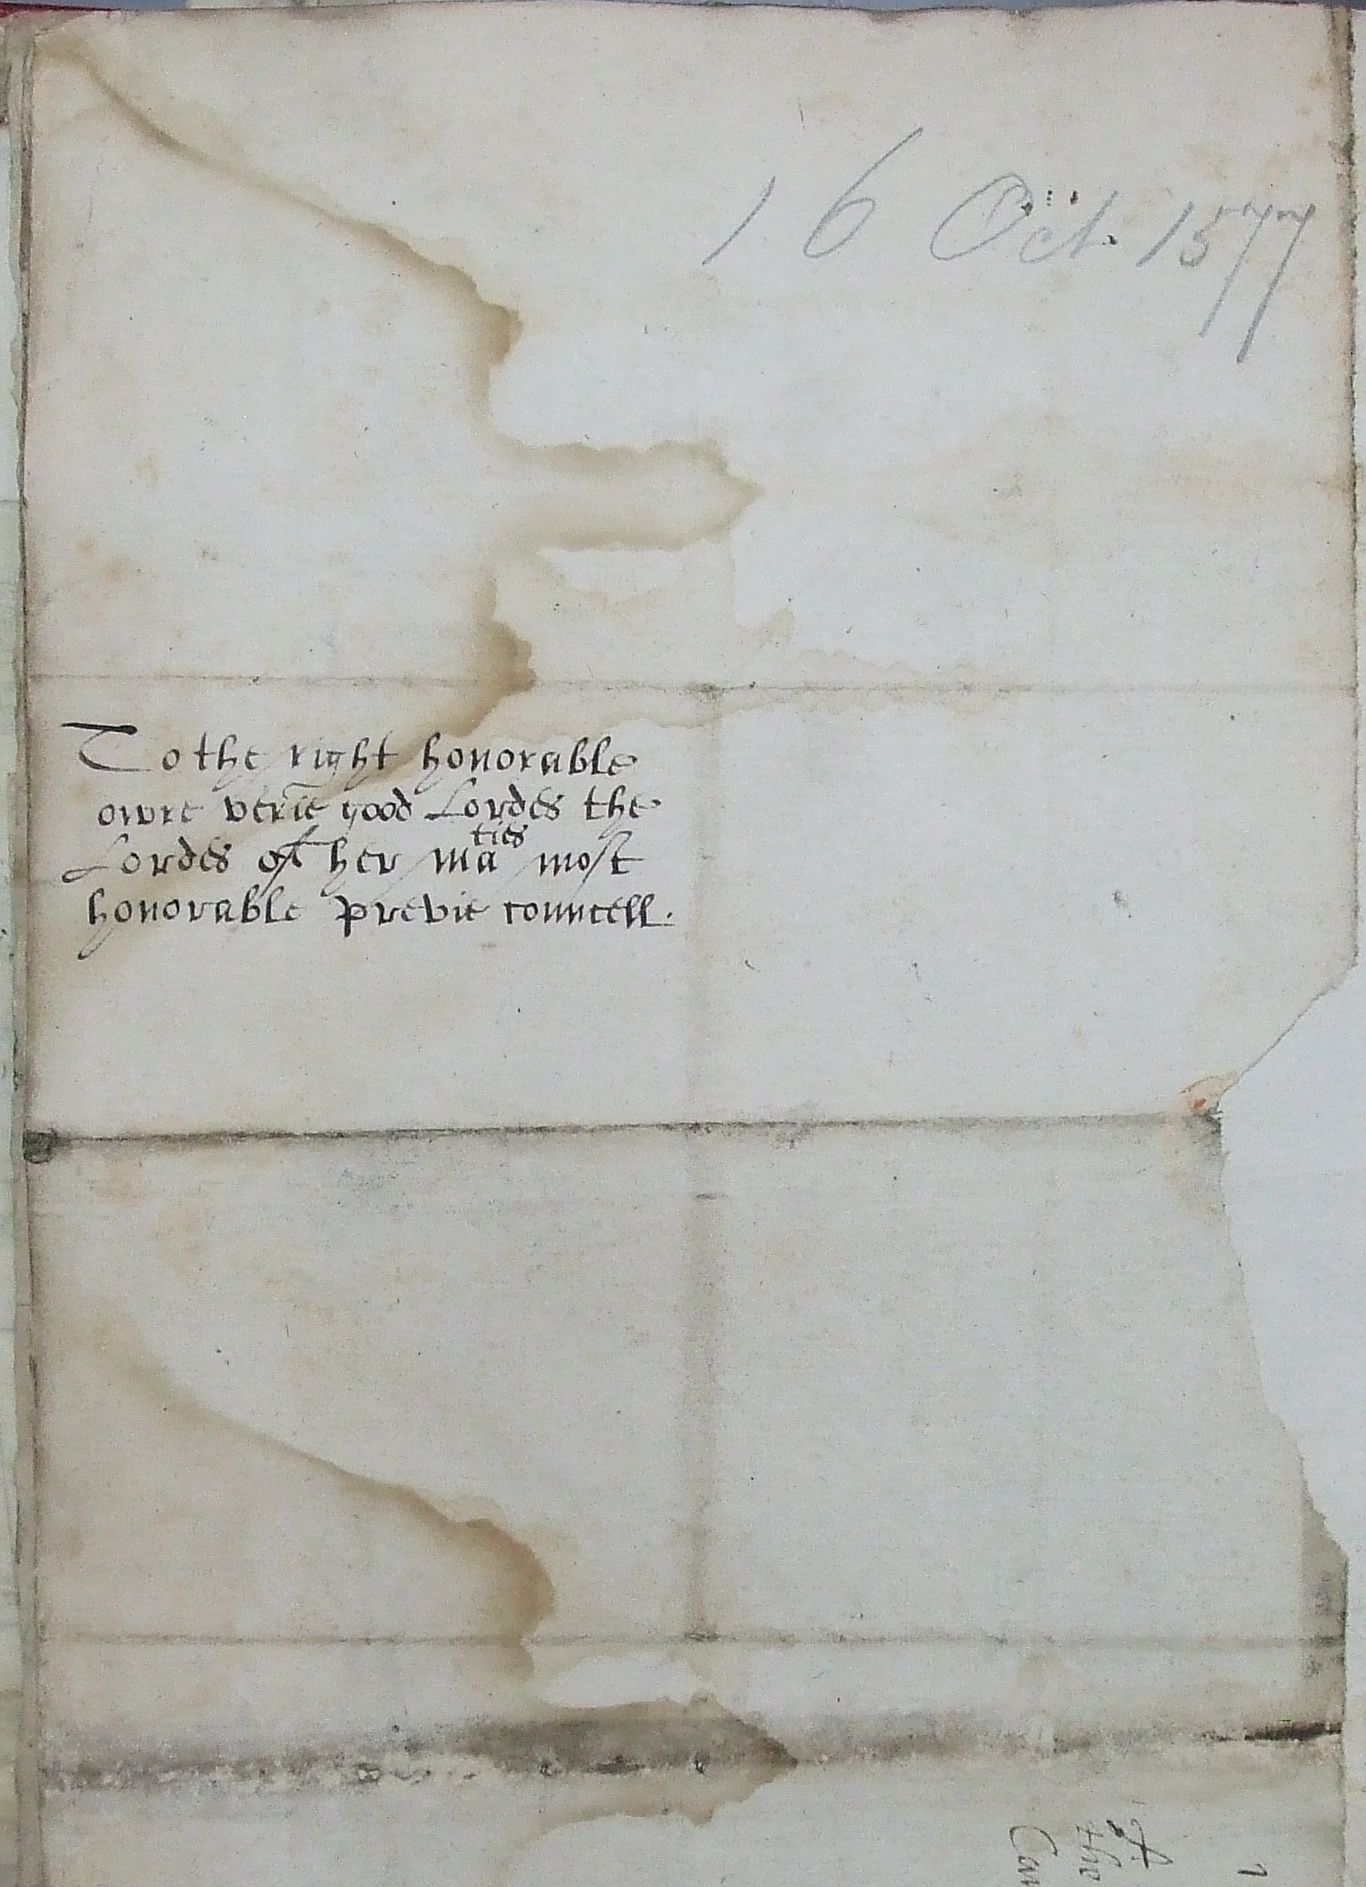 16 Oct. 1577
To the right honorable
owre verie good Lordes the
Lordes of her maties most
honorable previe councell.
A
the
Can